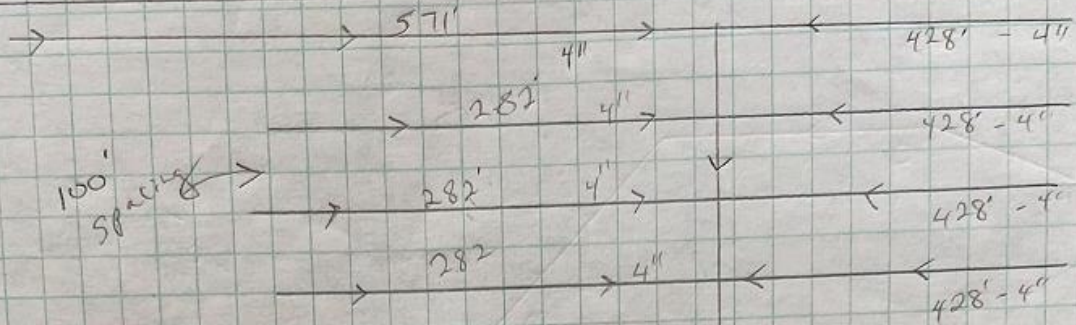 571'
4"
428' - 4"
282' 4"
428' - 4"
100'
spacing
282' 4"
428' - 4"
282 4"
428' - 4"